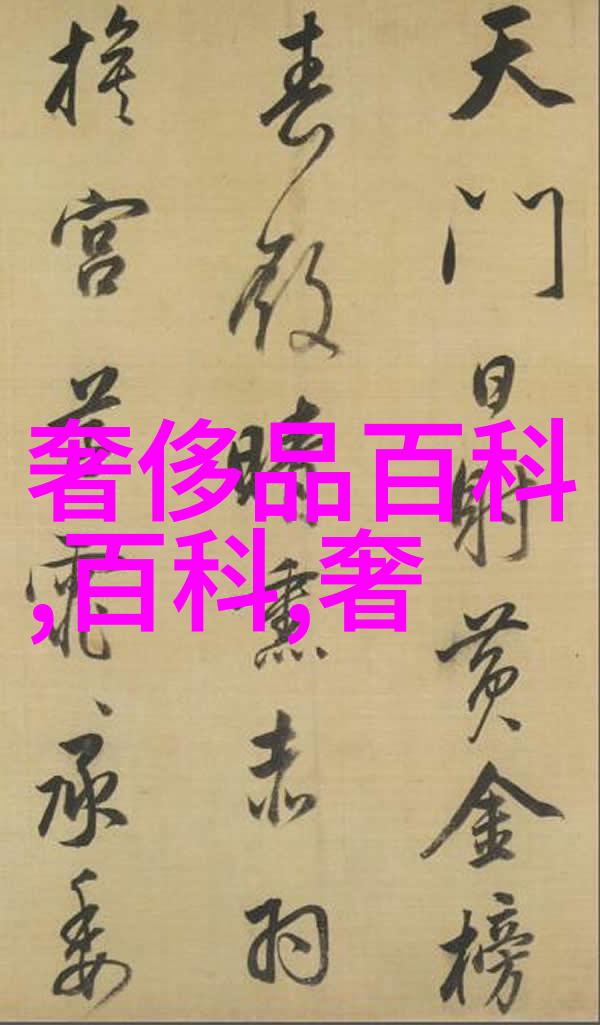 天门日射黄金榜
春殿晴熏赤羽
旗宫草霏、承委
奢侈品百科
,百科,奢